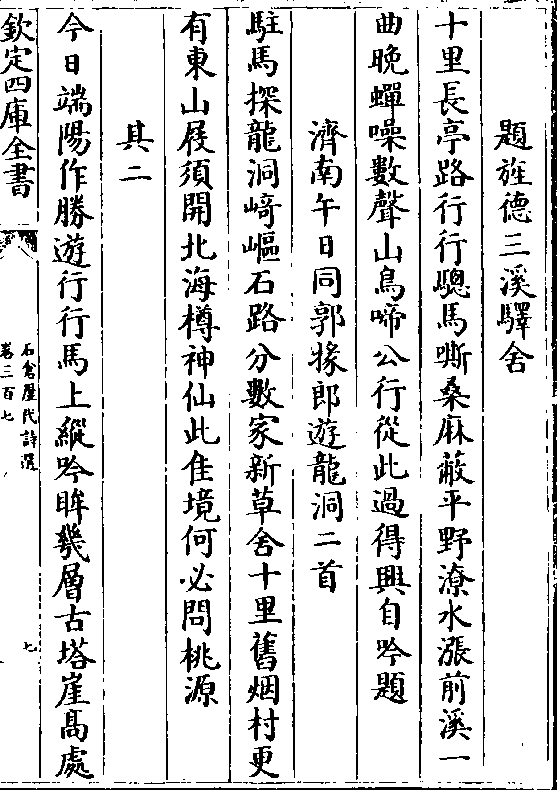 題旌德三溪驛舍
十里長亭路行行驄馬嘶桑麻蔽平野潦水漲前溪一
曲晚蟬噪數聲山鳥啼公行從此過得興自吟題
濟南午日同郭掾郎遊龍洞二首
駐馬探龍洞﨑嶇石路分數家新草舍十里舊烟村更
有東山屐須開北海樽神仙此佳境何必問桃源
其二
今日端陽作勝遊行行馬上縱吟眸幾層古塔崖髙處
欽定四庫全書
石倉歷代詩選
卷三百七
七